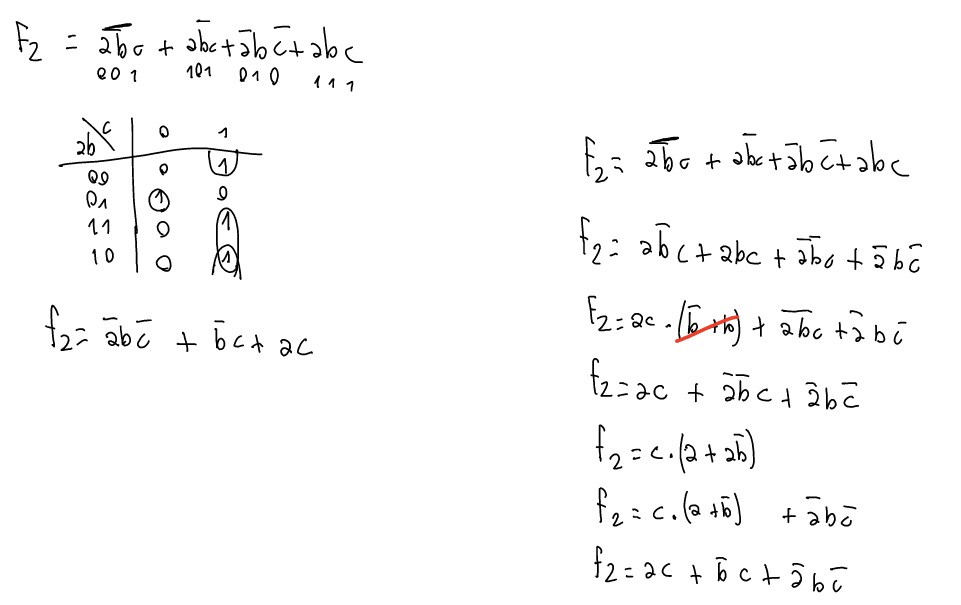 F₂ = a̅b̅c + ab̅c + a̅bc̅ + abc
001 101 010 111
ab\c 0 1
00 0 1
01 1 0
11 0 1
10 0 1
f₂ = a̅bc̅ + b̅c + ac
F₂ = a̅b̅c + ab̅c + a̅bc̅ + abc
f₂ = ab̅c + abc + a̅b̅c + a̅bc̅
F₂ = ac · (b̅ + b) + a̅b̅c + a̅bc̅
f₂ = ac + a̅b̅c + a̅bc̅
f₂ = c · (a + ab̅)
f₂ = c · (a + b̅) + a̅bc̅
f₂ = ac + b̅c + a̅bc̅